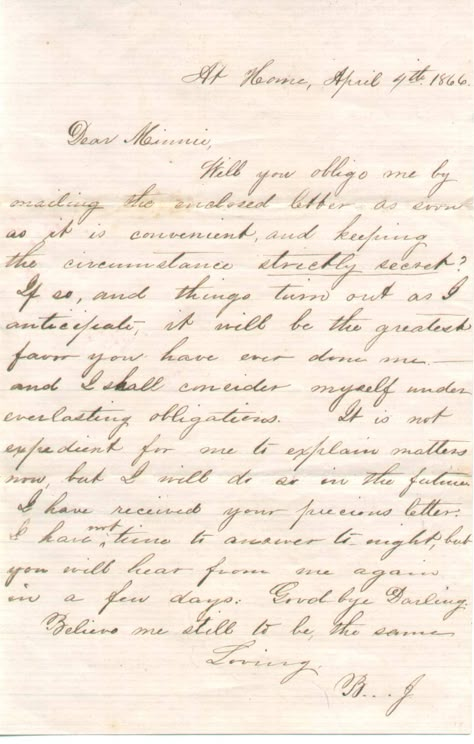 At Home, April 4th 1866.
Dear Minnie,
Will you oblige me by
mailing the enclosed letter as soon
as it is convenient, and keeping
the circumstance strictly secret?
If so, and things turn out as I
anticipate, it will be the greatest
favor you have ever done me —
and I shall consider myself under
everlasting obligations. It is not
expedient for me to explain matters
now, but I will do so in the future
I have received your precious letter.
I have not time to answer to-night, but
you will hear from me again
in a few days. Good bye Darling.
Believe me still to be, the same
Loving,
B... J